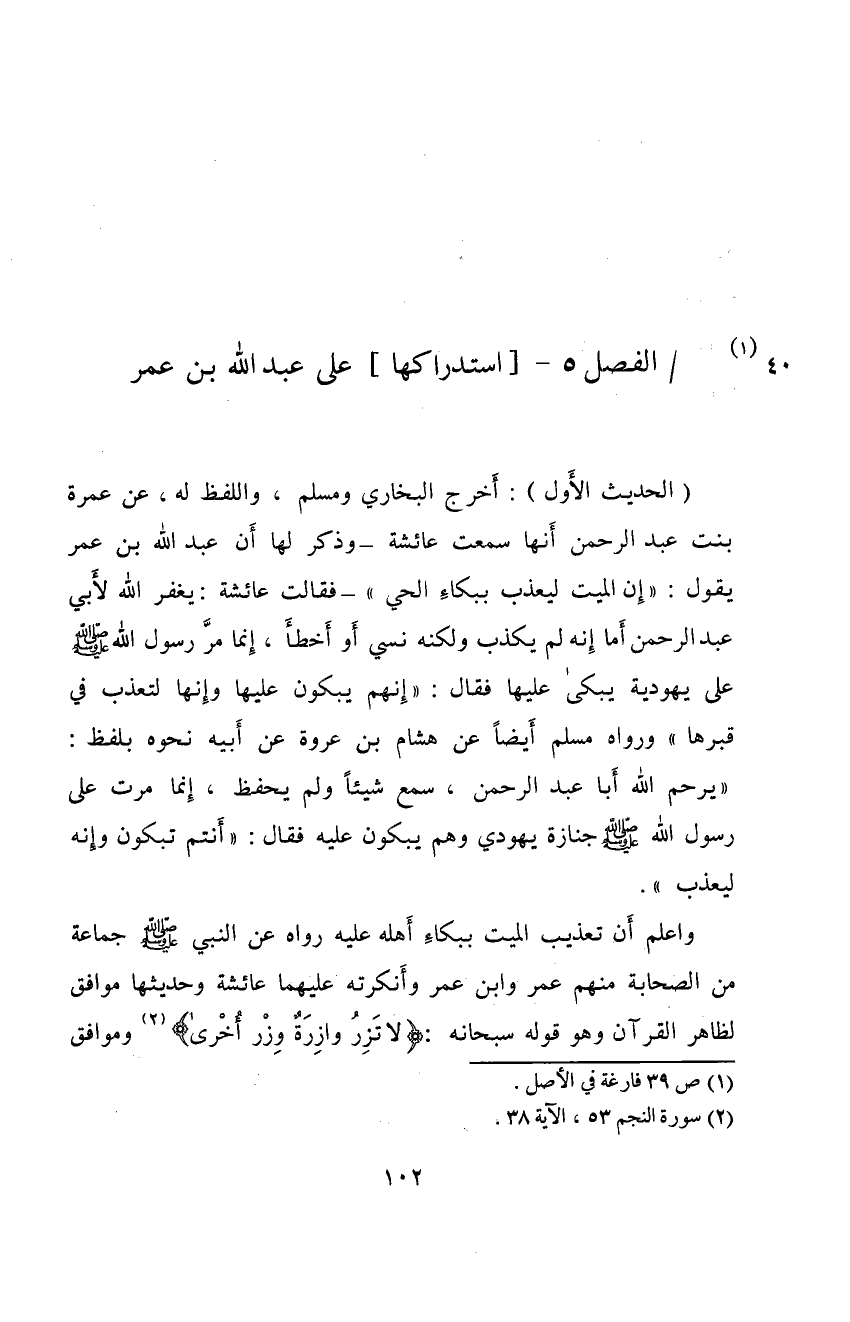 ٤٠ (١) / الفصل ٥ - [ استدراكها ] على عبد الله بن عمر
( الحديث الأَول ) : أَخرج البخاري ومسلم ، واللفظ له ، عن عمرة
بنت عبد الرحمن أَنها سمعت عائشة –وذكر لها أَن عبد الله بن عمر
يقول : «إِن الميت ليعذب ببكاءِ الحي » –فقالت عائشة :يغفر الله لأَبي
عبد الرحمن أَما إِنه لم يكذب ولكنه نسي أَو أَخطأَ ، إِنما مرَّ رسول الله ﷺ
على يهودية يبكىٰ عليها فقال : «إِنهم يبكون عليها وإِنها لتعذب في
قبرها » ورواه مسلم أَيضاً عن هشام بن عروة عن أَبيه نحوه بلفظ :
«يرحم الله أَبا عبد الرحمن ، سمع شيئاً ولم يحفظ ، إِنما مرت على
رسول الله ﷺ جنازة يهودي وهم يبكون عليه فقال : «أَنتم تبكون وإِنه
ليعذب » .
واعلم أَن تعذيب الميت ببكاءِ أَهله عليه رواه عن النبي ﷺ جماعة
من الصحابة منهم عمر وابن عمر وأَنكرته عليهما عائشة وحديثها موافق
لظاهر القرآن وهو قوله سبحانه :﴿لا تَزِرُ وازِرَةٌ وِزْر أُخْرىٰ﴾(٢) وموافق
(١) ص ٣٩ فارغة في الأصل .
(٢) سورة النجم ٥٣ ، الآية ٣٨ .
١٠٢